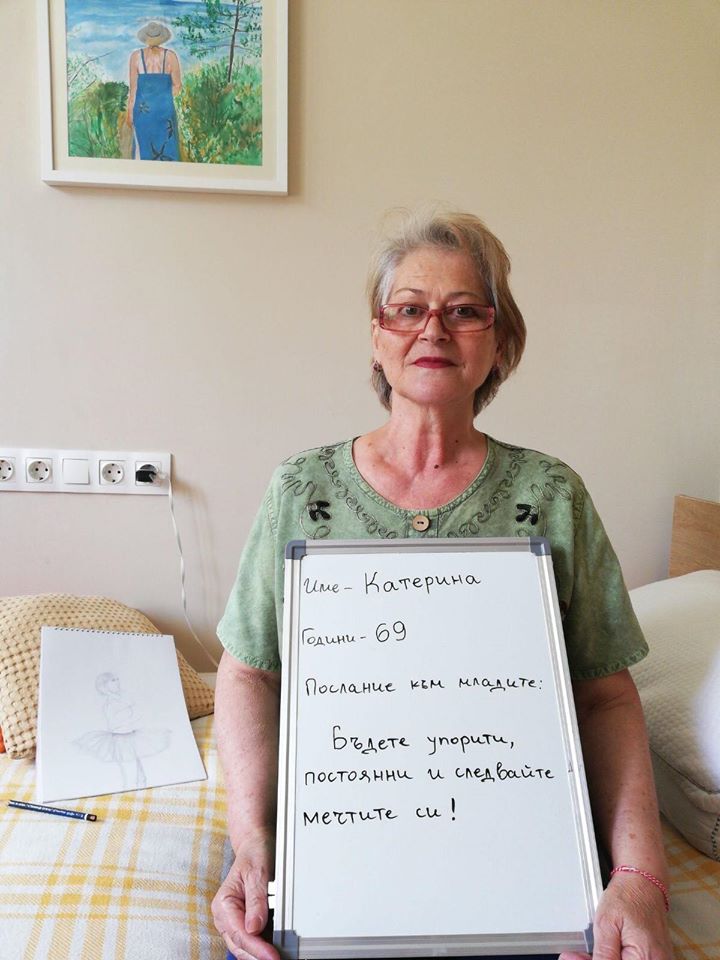 Име - Катерина
Години - 69
Послание към младите:
Бъдете упорити,
постоянни и следвайте
мечтите си!